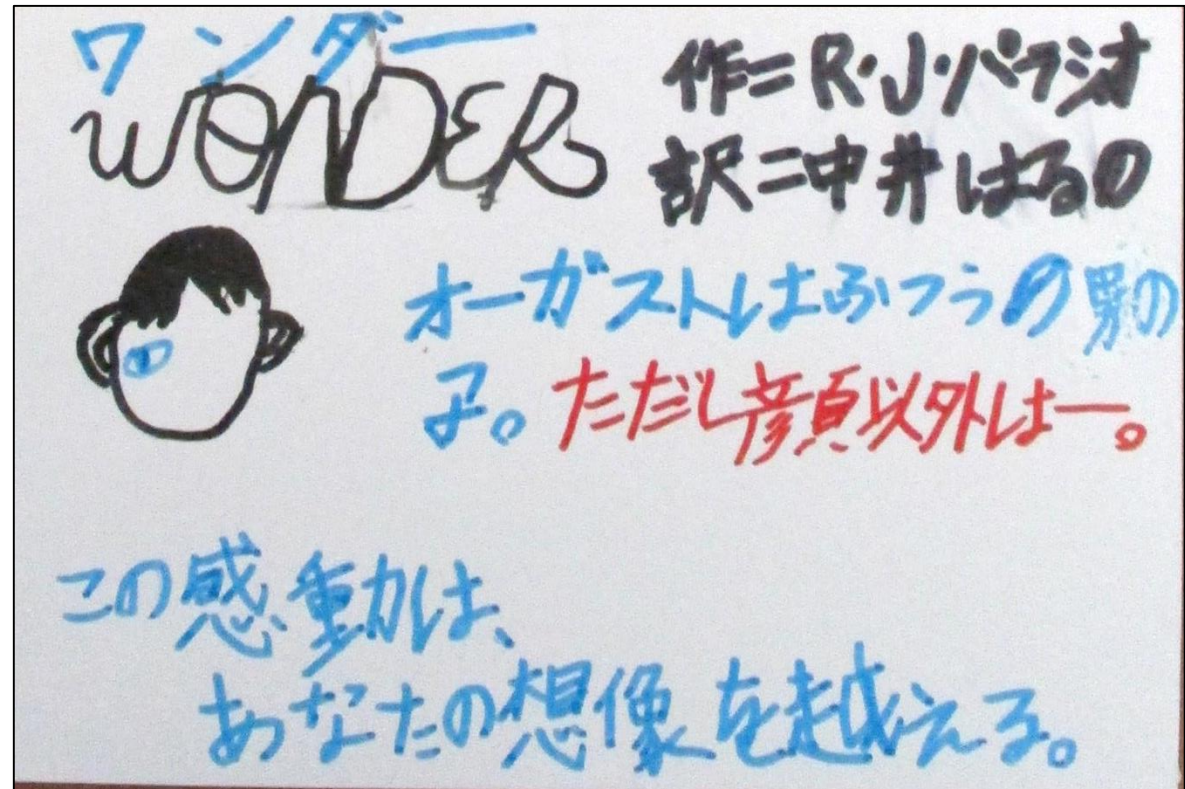 ワンダー
WONDER
作=R・J・パラシオ
訳=中井はるの
オーガストはふつうの男の
子。ただし顔以外は―。
この感動は、
あなたの想像を越える。